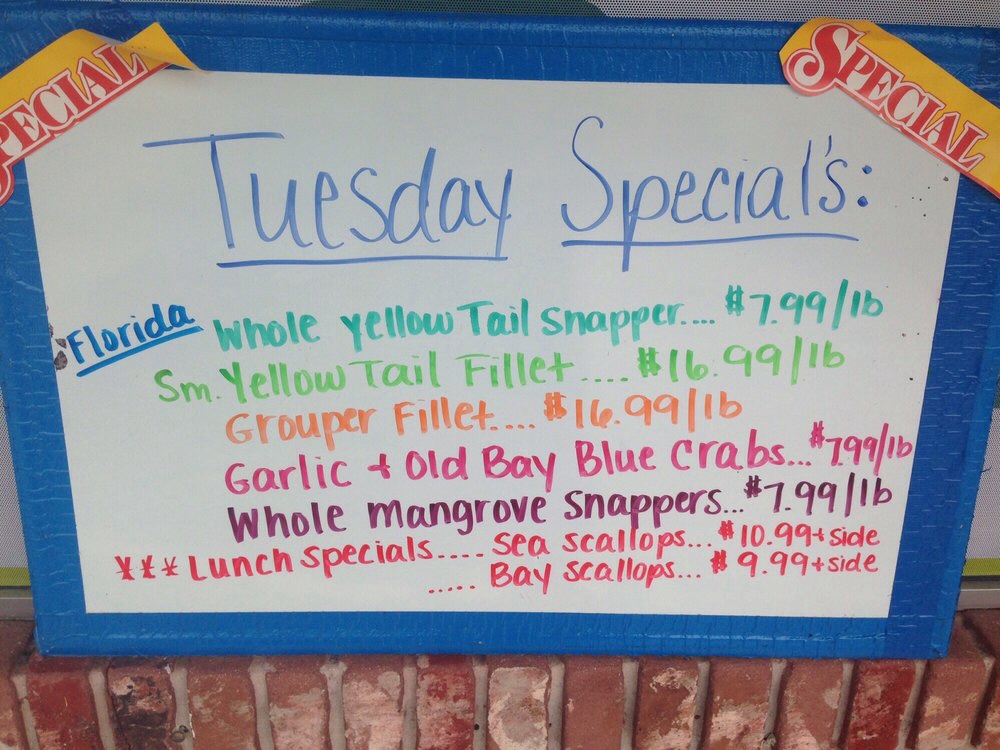 SPECIAL
SPECIAL
Tuesday Special's:
Florida Whole Yellow Tail Snapper.... $7.99/lb
Sm. Yellow Tail Fillet .... $16.99/lb
Grouper Fillet.... $16.99/lb
Garlic + Old Bay Blue Crabs... $7.99/lb
Whole Mangrove Snappers... $7.99/lb
*** Lunch Specials.... Sea Scallops... $10.99+side
..... Bay Scallops... $9.99+side